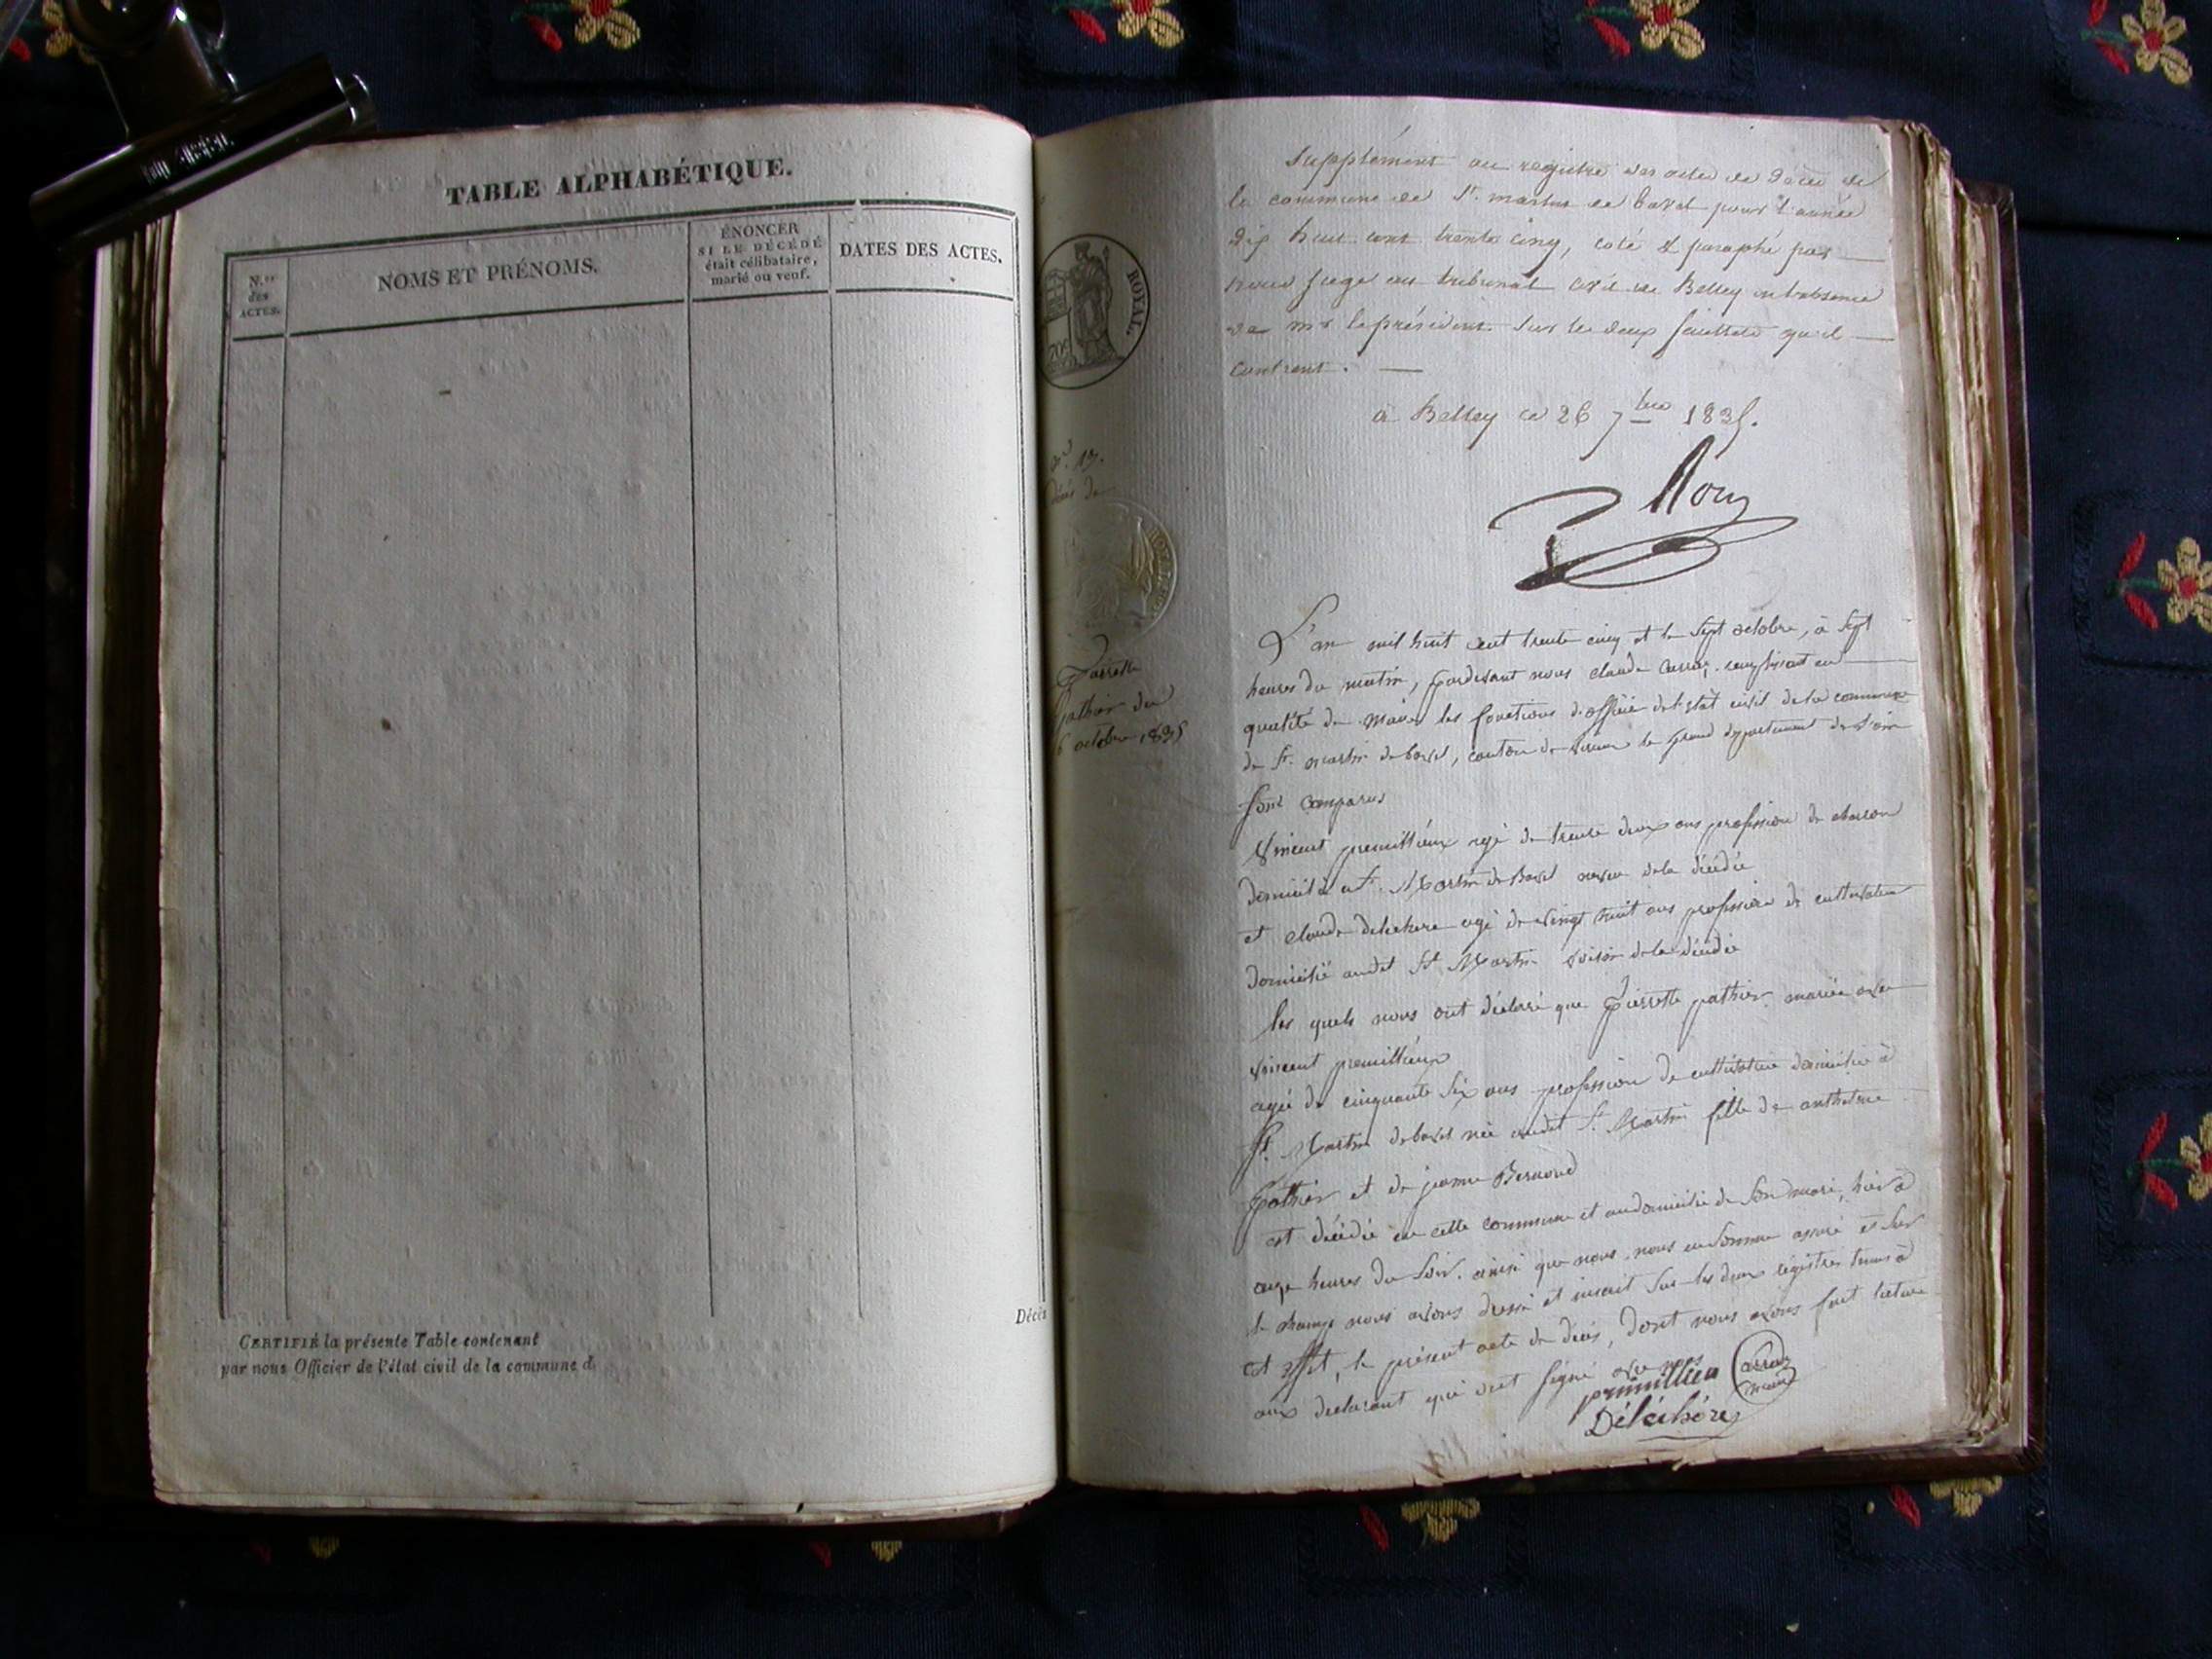 TABLE ALPHABÉTIQUE.
N.os
DES
ACTES.
NOMS ET PRÉNOMS.
ÉNONCER
SI LE DÉCÉDÉ
était célibataire,
marié ou veuf.
DATES DES ACTES.
Décès
CERTIFIÉ la présente Table contenant
par nous Officier de l'état civil de la commune d
Supplément au registre des actes de décès de
la commune de St. martin de bavel pour l'année
dix huit cent trente cinq, coté & paraphé par
nous juge au tribunal civil de Belley en l'absence
de mr le président sur les deux feuillets qu'il
contient.
à Belley ce 26 7bre 1835.
ROYAL.
70c
décès de
Pierrette
pathier du
6 octobre 1835
L'an mil huit cent trente cinq et le sept octobre, à sept
heures du matin, pardevant nous claude Carraz, remplissant en
qualité de Maire les fonctions d'officier de l'état civil de la commune
de St. martin de bavel, canton de virieu le grand département de l'ain
sont comparus
Vincent premillieux agé de trente deux ans profession de charron
domicilié a St. Martin de Bavel neveu de la décédée
et claude delechere agé de vingt huit ans profession de cultivateur
domicilié audit St Martin voisin de la décédée
les quels nous ont déclaré que Pierrette pathier mariée avec
vincent premillieux
agée de cinquante six ans profession de cultivatrice domiciliée à
St. Martin de bavel née audit St. Martin fille de anthelme
pathier et de jeanne Bernond
est décédée en cette commune et au domicile de son mari, hier à
onze heures du soir. ainsi que nous nous en sommes assuré et sur
le champ nous avons dressé et inscrit sur les deux régistres tenus à
cet effet, le présent acte de décès, dont nous avons fait lecture
aux declarant qui ont signé avec nous
premillieu Carraz
maire
Déléchère